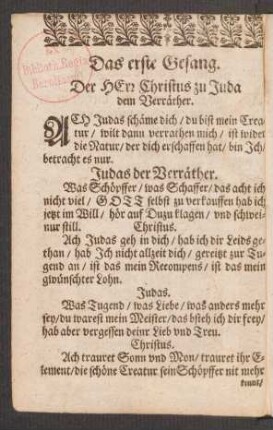 EX
Biblioth. Regia
Berolinensi.
Das erste Gesang.
Der HErr Christus zu Juda
dem Verräther.
ACH Judas schäme dich / du bist mein Crea-
tur / wilt dann verrathen mich / ist wider
die Natur / der dich erschaffen hat / bin Jch /
betracht es nur.
Judas der Verräther.
Was Schöpffer / was Schaffer / das acht ich
nicht viel / GOTT selbst zu verkauffen hab ich
jetzt im Will / hör auf Du zu klagen / vnd schwei-
nur still.
Christus.
Ach Judas geh in dich / hab ich dir Leids ge-
than / hab Jch nicht allzeit dich / gereitzt zur Tu-
gend an / ist das mein Recompens / ist das mein
gwünschter Lohn.
Judas.
Was Tugend / was Liebe / was anders mehr
sey / du warest mein Meister / das bsteh ich dir frey /
hab aber vergessen deinr Lieb vnd Treu.
Christus.
Ach trauret Sonn vnd Mon / trauret ihr E-
lement / die schöne Creatur sein Schöpffer nit mehr